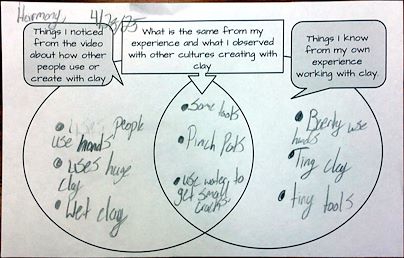 Harmony, 4/29/25
Things I noticed
from the video
about how other
people use or
create with clay.
What is the same from my
experience and what I observed
with other cultures creating with
clay
Things I know
from my own
experience
working with clay.
people
use hands
• uses huge
clay
• Wet clay
• Some tools
• Pinch Pots
• use water to
get small
cracks
• use
hands
• Tiny clay
• tiny tools